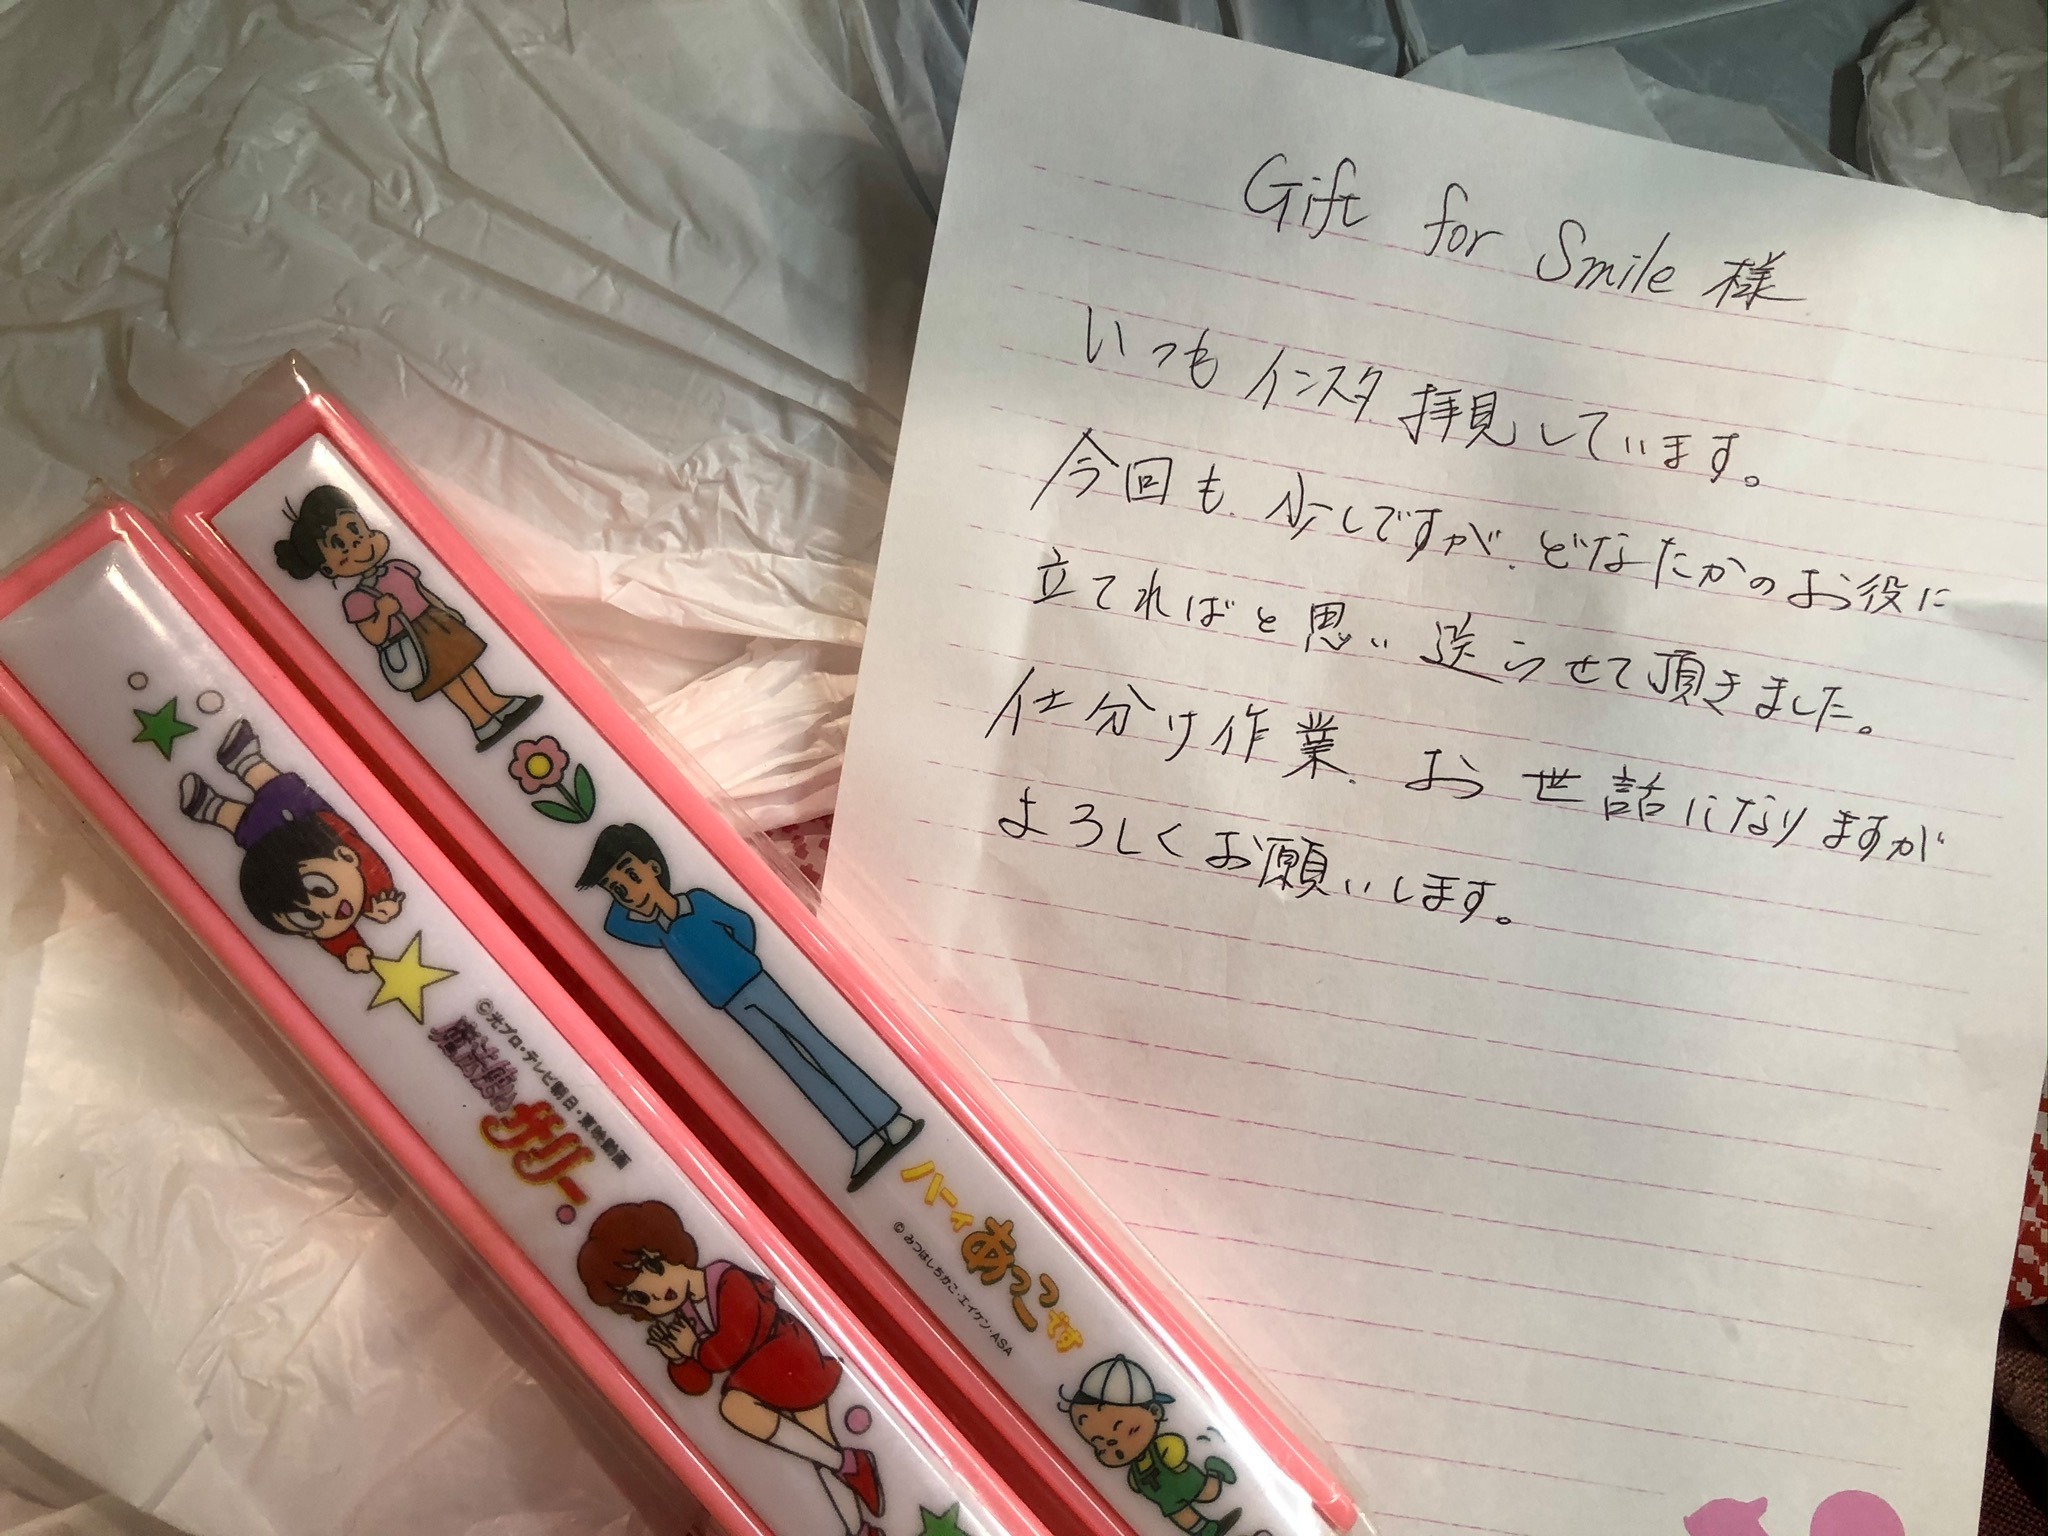 Gift for Smile 様
いつも インスタ 拝見しています。
今回も、少しですが、どなたかのお役に
立てればと思い 送らせて頂きました。
仕分け作業、お世話になりますが
よろしくお願いします。
©光プロ・テレビ朝日・東映動画
魔法使い
サリー
ハーイ
あっこです
©みつはしちかこ・エイケン・ASA